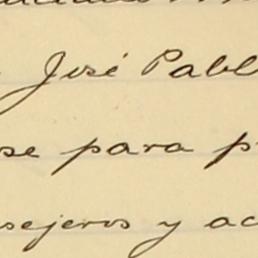 José Pabl
se para p
sejeros y ac